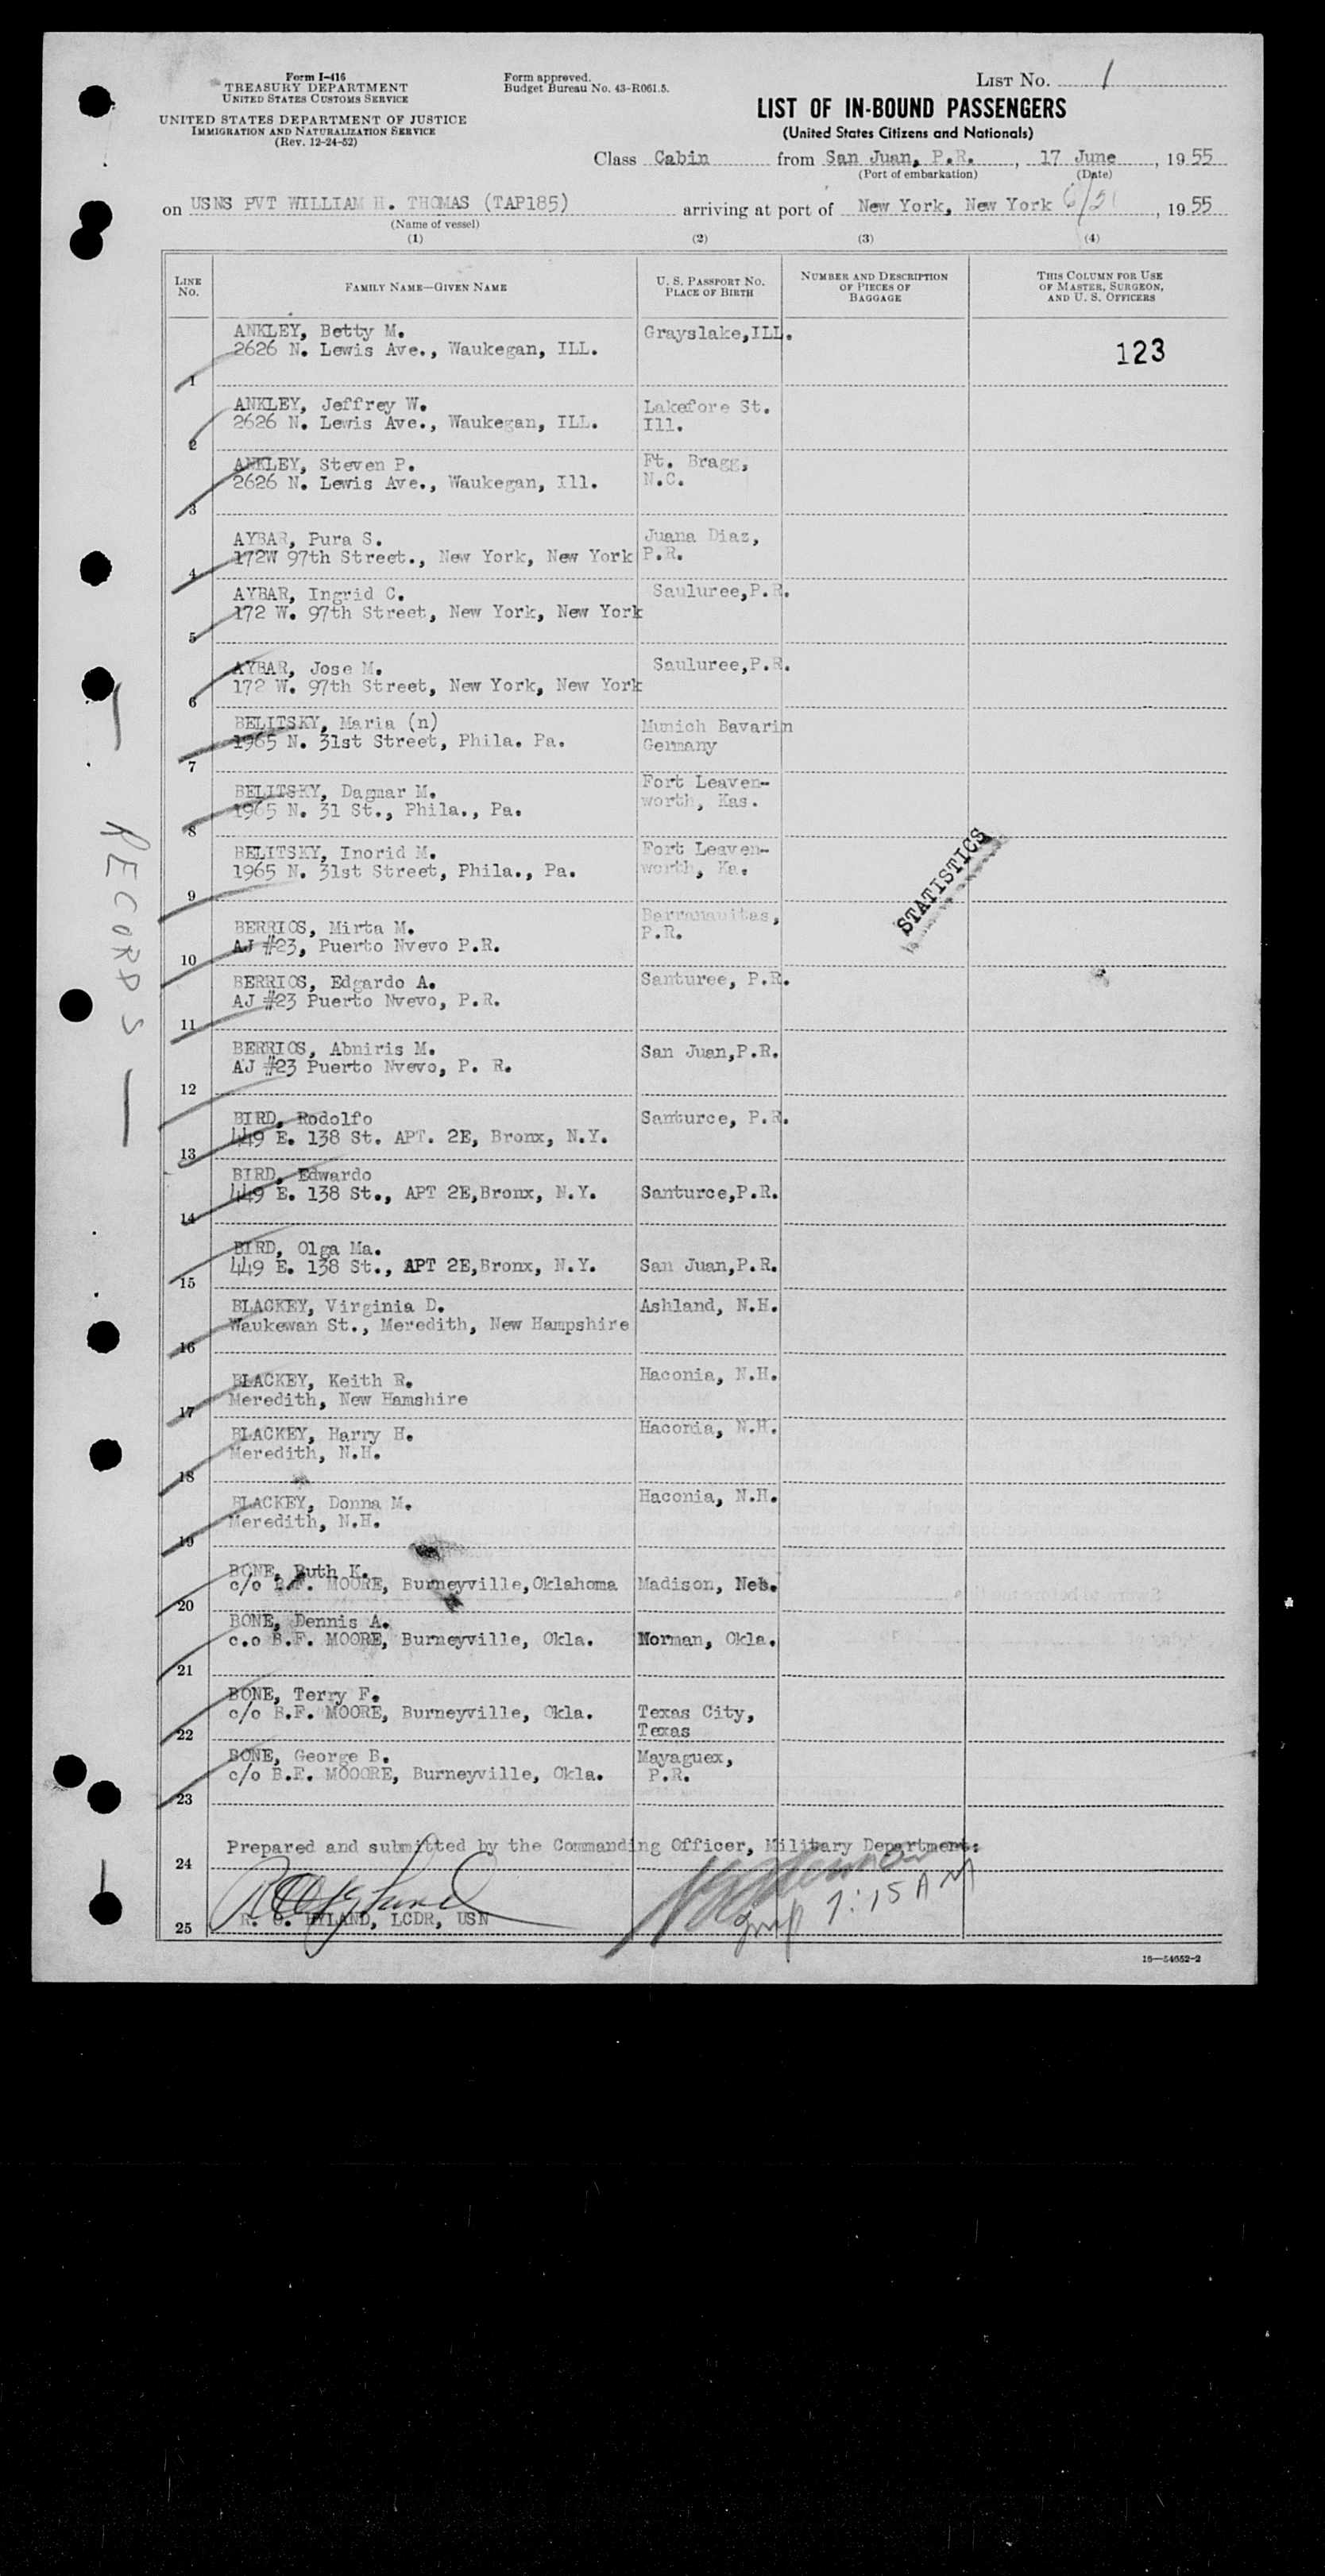 Form I-416
TREASURY DEPARTMENT
UNITED STATES CUSTOMS SERVICE
UNITED STATES DEPARTMENT OF JUSTICE
IMMIGRATION AND NATURALIZATION SERVICE
(Rev. 12-24-52)
Form approved.
Budget Bureau No. 43-R061.5.
LIST NO. 1
LIST OF IN-BOUND PASSENGERS
(United States Citizens and Nationals)
Class Cabin from San Juan, P.R. , 17 June , 19 55
(Port of embarkation) (Date)
on USNS PVT WILLIAM H. THOMAS (TAP185) arriving at port of New York, New York , 19 55
(Name of vessel)
(1) (2) (3) (4)
LINE NO. FAMILY NAME—GIVEN NAME U. S. PASSPORT NO. PLACE OF BIRTH NUMBER AND DESCRIPTION OF PIECES OF BAGGAGE THIS COLUMN FOR USE OF MASTER, SURGEON, AND U. S. OFFICERS
ANKLEY, Betty M. Grayslake,ILL.
2626 N. Lewis Ave., Waukegan, ILL. 123
1
ANKLEY, Jeffrey W. Lakefore St.
2626 N. Lewis Ave., Waukegan, ILL. Ill.
2
ANKLEY, Steven P. Ft. Bragg,
2626 N. Lewis Ave., Waukegan, Ill. N.C.
3
AYBAR, Pura S. Juana Diaz,
172W 97th Street., New York, New York P.R.
4
AYBAR, Ingrid C. Sauluree,P.R.
172 W. 97th Street, New York, New York
5
AYBAR, Jose M. Sauluree,P.R.
172 W. 97th Street, New York, New York
6
BELITSKY, Maria (n) Munich Bavarin
1965 N. 31st Street, Phila. Pa. Germany
7
BELITSKY, Dagmar M. Fort Leaven-
1965 N. 31 St., Phila., Pa. worth, Kas.
8
BELITSKY, Inorid M. Fort Leaven-
1965 N. 31st Street, Phila., Pa. worth, Ka.
9
BERRIOS, Mirta M. Barranauitas,
AJ #23, Puerto Nvevo P.R. P.R.
10
BERRIOS, Edgardo A. Santuree, P.R.
AJ #23 Puerto Nvevo, P.R.
11
BERRIOS, Abniris M. San Juan,P.R.
AJ #23 Puerto Nvevo, P. R.
12
BIRD, Rodolfo Santurce, P.R.
449 E. 138 St. APT. 2E, Bronx, N.Y.
13
BIRD, Edwardo
449 E. 138 St., APT 2E,Bronx, N.Y. Santurce,P.R.
14
BIRD, Olga Ma.
449 E. 138 St., APT 2E,Bronx, N.Y. San Juan,P.R.
15
BLACKEY, Virginia D. Ashland, N.H.
Waukewan St., Meredith, New Hampshire
16
BLACKEY, Keith R. Haconia, N.H.
Meredith, New Hamshire
17
BLACKEY, Harry H. Haconia, N.H.
Meredith, N.H.
18
BLACKEY, Donna M. Haconia, N.H.
Meredith, N.H.
19
BONE, Ruth K.
c/o B.F. MOORE, Burneyville,Oklahoma Madison, Neb.
20
BONE, Dennis A.
c.o B.F. MOORE, Burneyville, Okla. Norman, Okla.
21
BONE, Terry F.
c/o B.F. MOORE, Burneyville, Okla. Texas City,
22 Texas
BONE, George B. Mayaguex,
c/o B.F. MOOORE, Burneyville, Okla. P.R.
23
Prepared and submitted by the Commanding Officer, Military Department:
24
7:15 AM
25 R. O. HYLAND, LCDR, USN
16—54652-2
STATISTICS
— RECORDS —